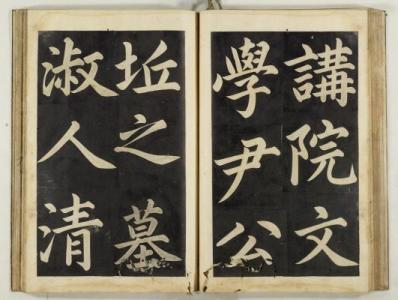 講院文
學尹公
坵之墓
淑人清